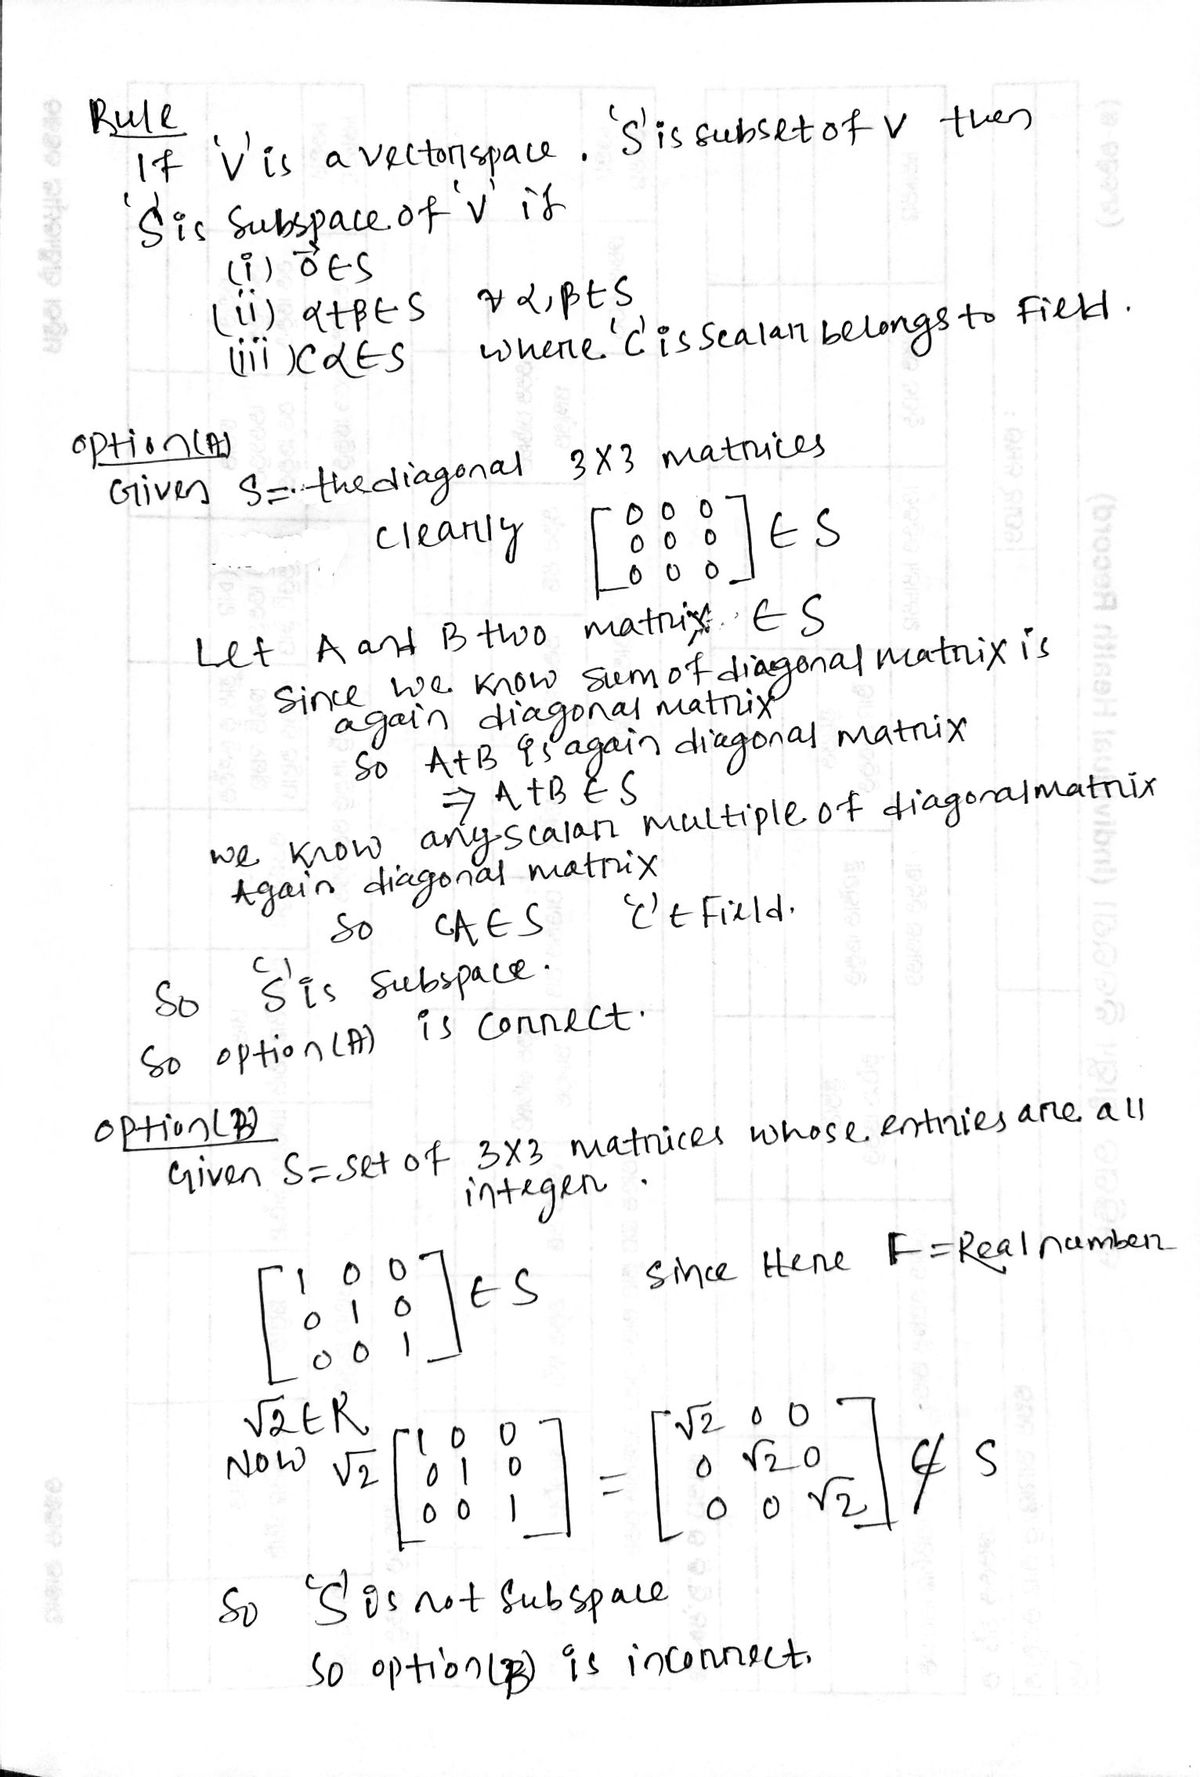 Rule
If 'V' is a vector space. 'S' is subset of V then
'S' is Subspace of 'V' if
(i) 0⃗ ∈ S
(ii) α+β ∈ S ∀ α,β ∈ S
(iii) Cα ∈ S where 'C' is scalar belongs to Field.
option(A)
Given S = the diagonal 3×3 matrices
clearly [0 0 0
0 0 0
0 0 0] ∈ S
Let A and B two matrix ∈ S
Since we know sum of diagonal matrix is
again diagonal matrix
So A+B is again diagonal matrix
⇒ A+B ∈ S
we know any scalar multiple of diagonal matrix
Again diagonal matrix
So CA ∈ S 'C' ∈ Field.
So 'S' is Subspace.
So option(A) is correct.
option(B)
Given S = set of 3×3 matrices whose entries are all
integer.
[1 0 0
0 1 0
0 0 1] ∈ S Since Here F = Real number
√2 ∈ R
Now √2 [1 0 0
0 1 0
0 0 1] = [√2 0 0
0 √2 0
0 0 √2] ∉ S
So 'S' is not Subspace
So option(B) is incorrect.